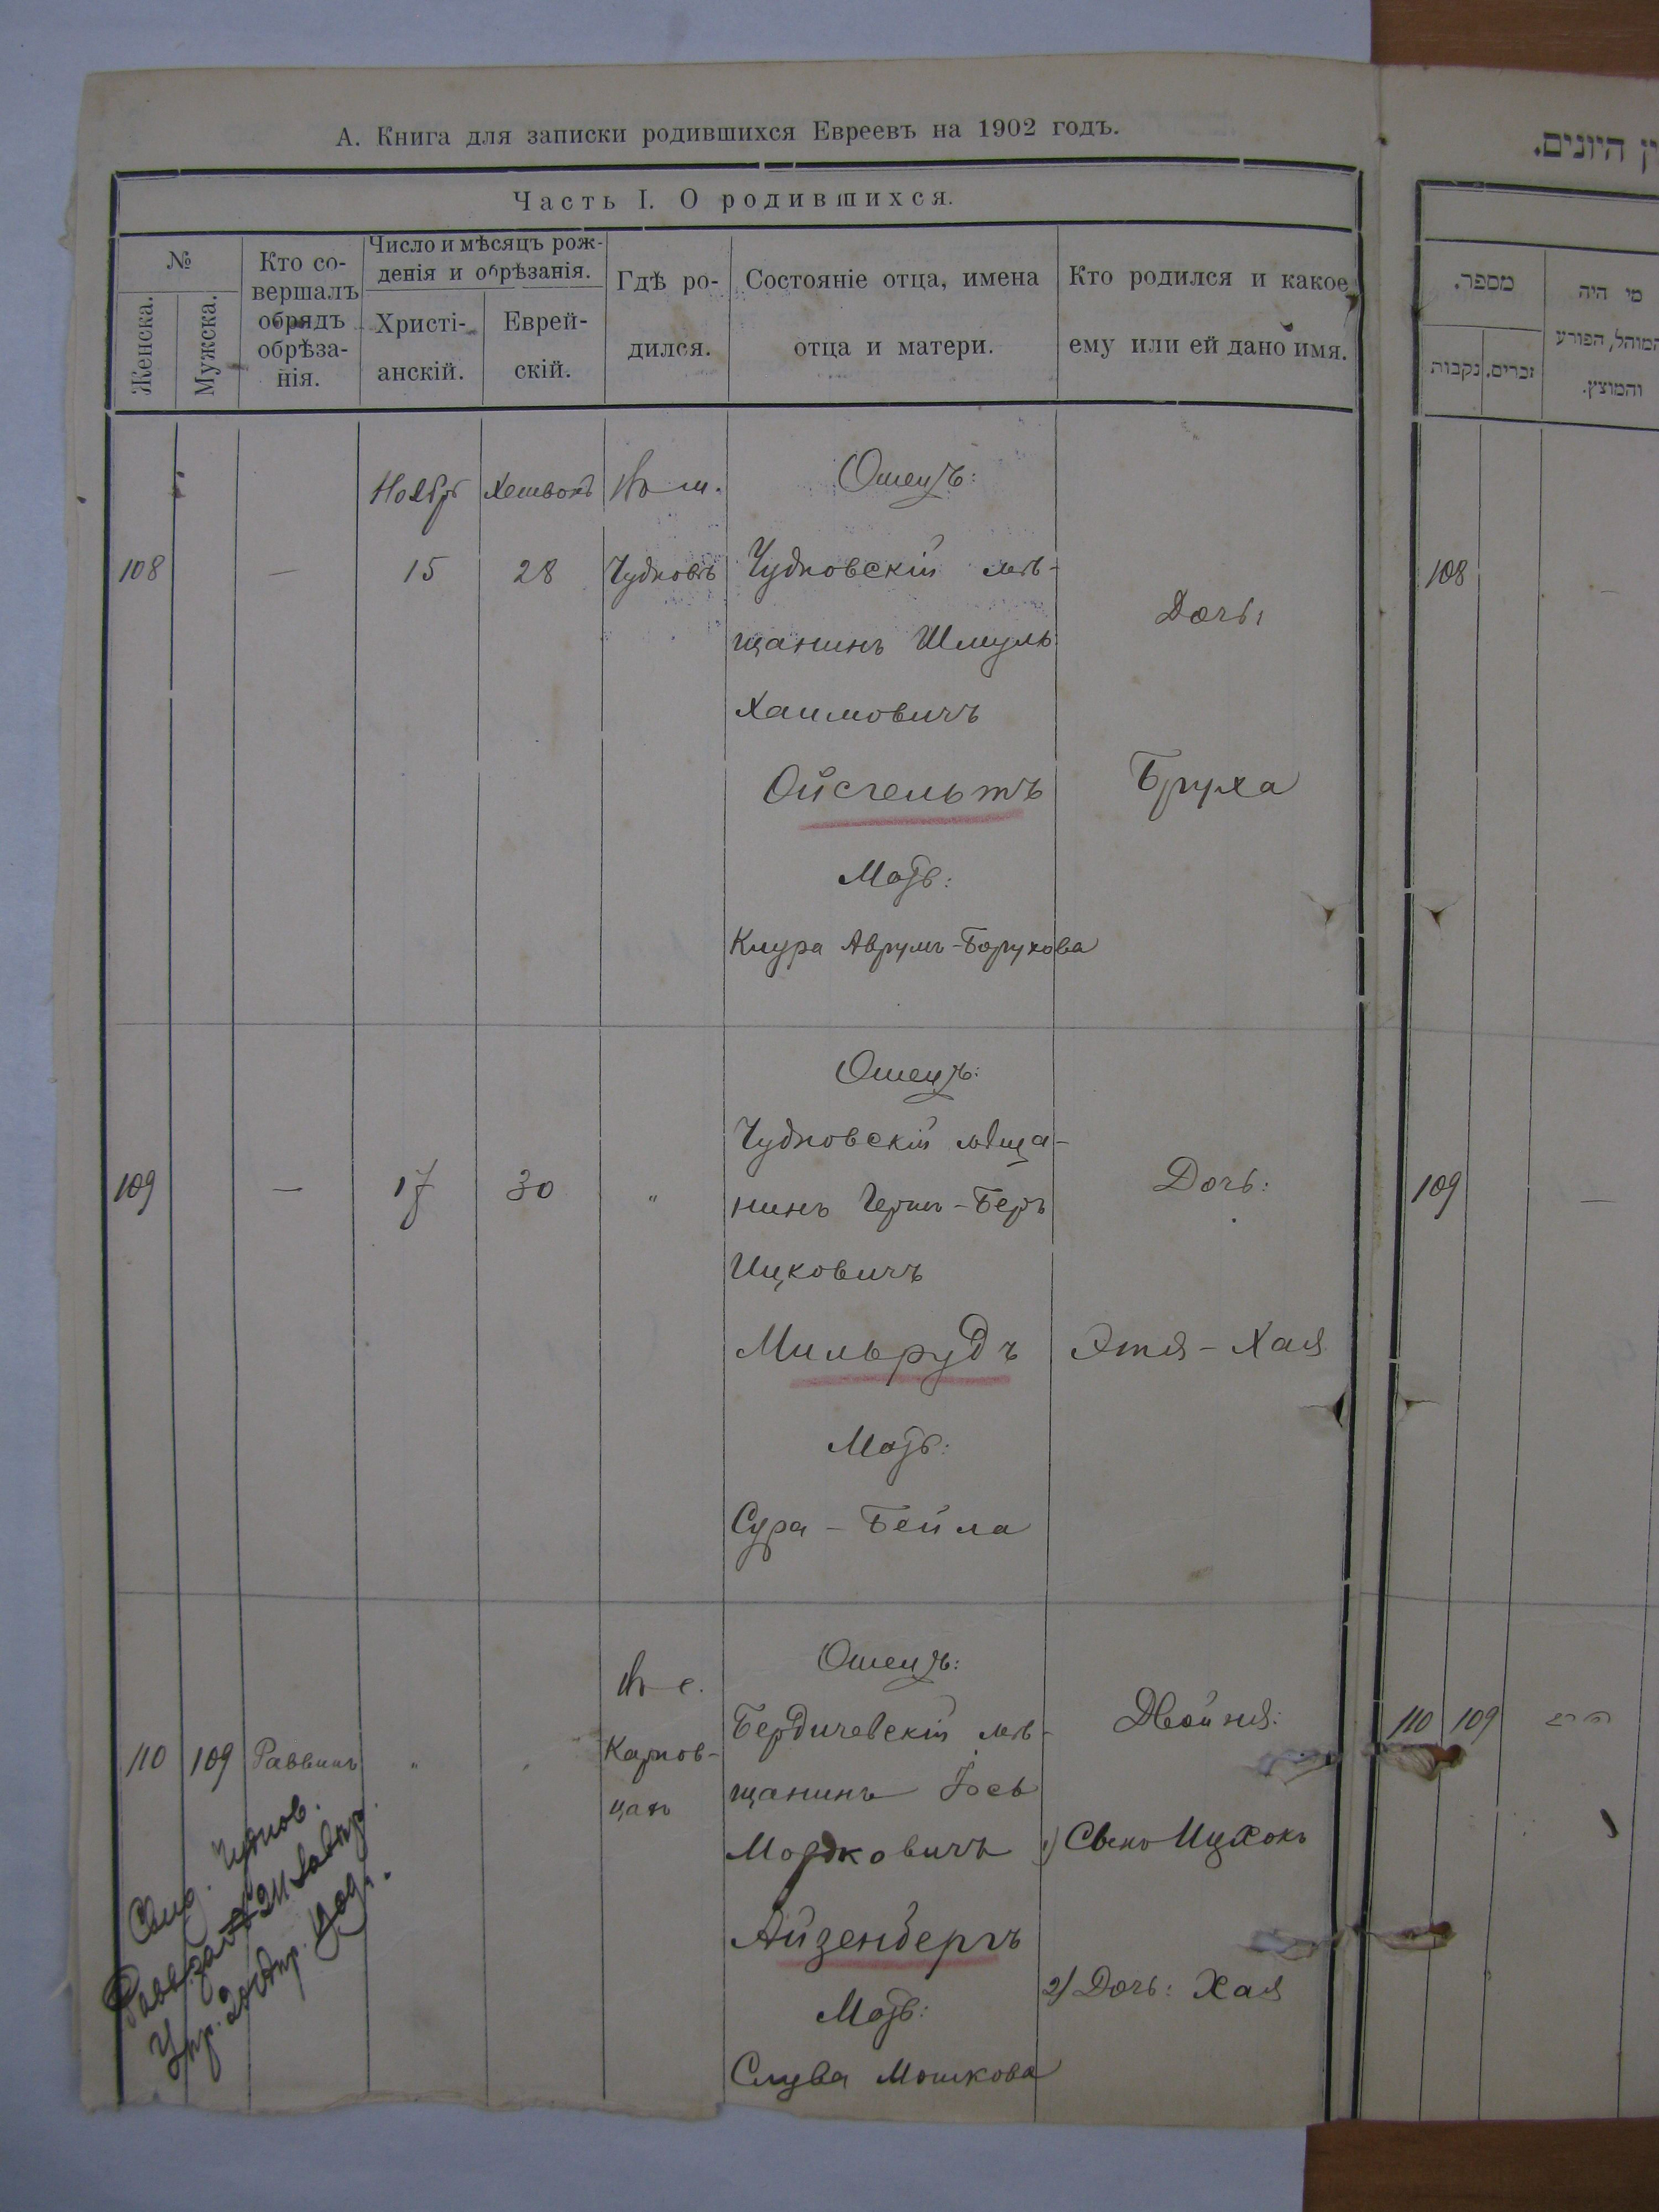 А. Книга для записки родившихся Евреевъ на 1902 годъ.
Часть I. О родившихся.
№
Женска.
Мужска.
Кто со-
вершалъ
обрядъ
обрѣза-
нія.
Число и мѣсяцъ рож-
денія и обрѣзанія.
Христі-
анскій.
Еврей-
скій.
Гдѣ ро-
дился.
Состояніе отца, имена
отца и матери.
Кто родился и какое
ему или ей дано имя.
Ноябрь
Хешвонъ
Въ м.
108
—
15
28
Чудновъ
Отецъ:
Чудновскій мѣ-
щанинъ Шмуль
Хаимовичъ
Ойсгельтъ
Мать:
Аврумъ-Борухова
Дочь:
Бруха
109
—
17
30
"
Отецъ:
Чудновскій мѣща-
нинъ Гершъ-Беръ
Ицковичъ
Мильрудъ
Мать:
Сура-Бейла
Дочь:
Этя-Хая
110
109
Раввинъ
"
"
Въ с.
Карпов-
цахъ
Отецъ:
Бердичевскій мѣ-
щанинъ Іось
Мордковичъ
Айзенбергъ
Мать:
Слува Мошкова
Двойня:
1) Сынъ Ицхокъ
2) Дочь: Хая
ין היונים.
מספר.
נקבות
זכרים.
מי היה
המוהל, הפורע
והמוצץ.
108
—
109
—
110
109